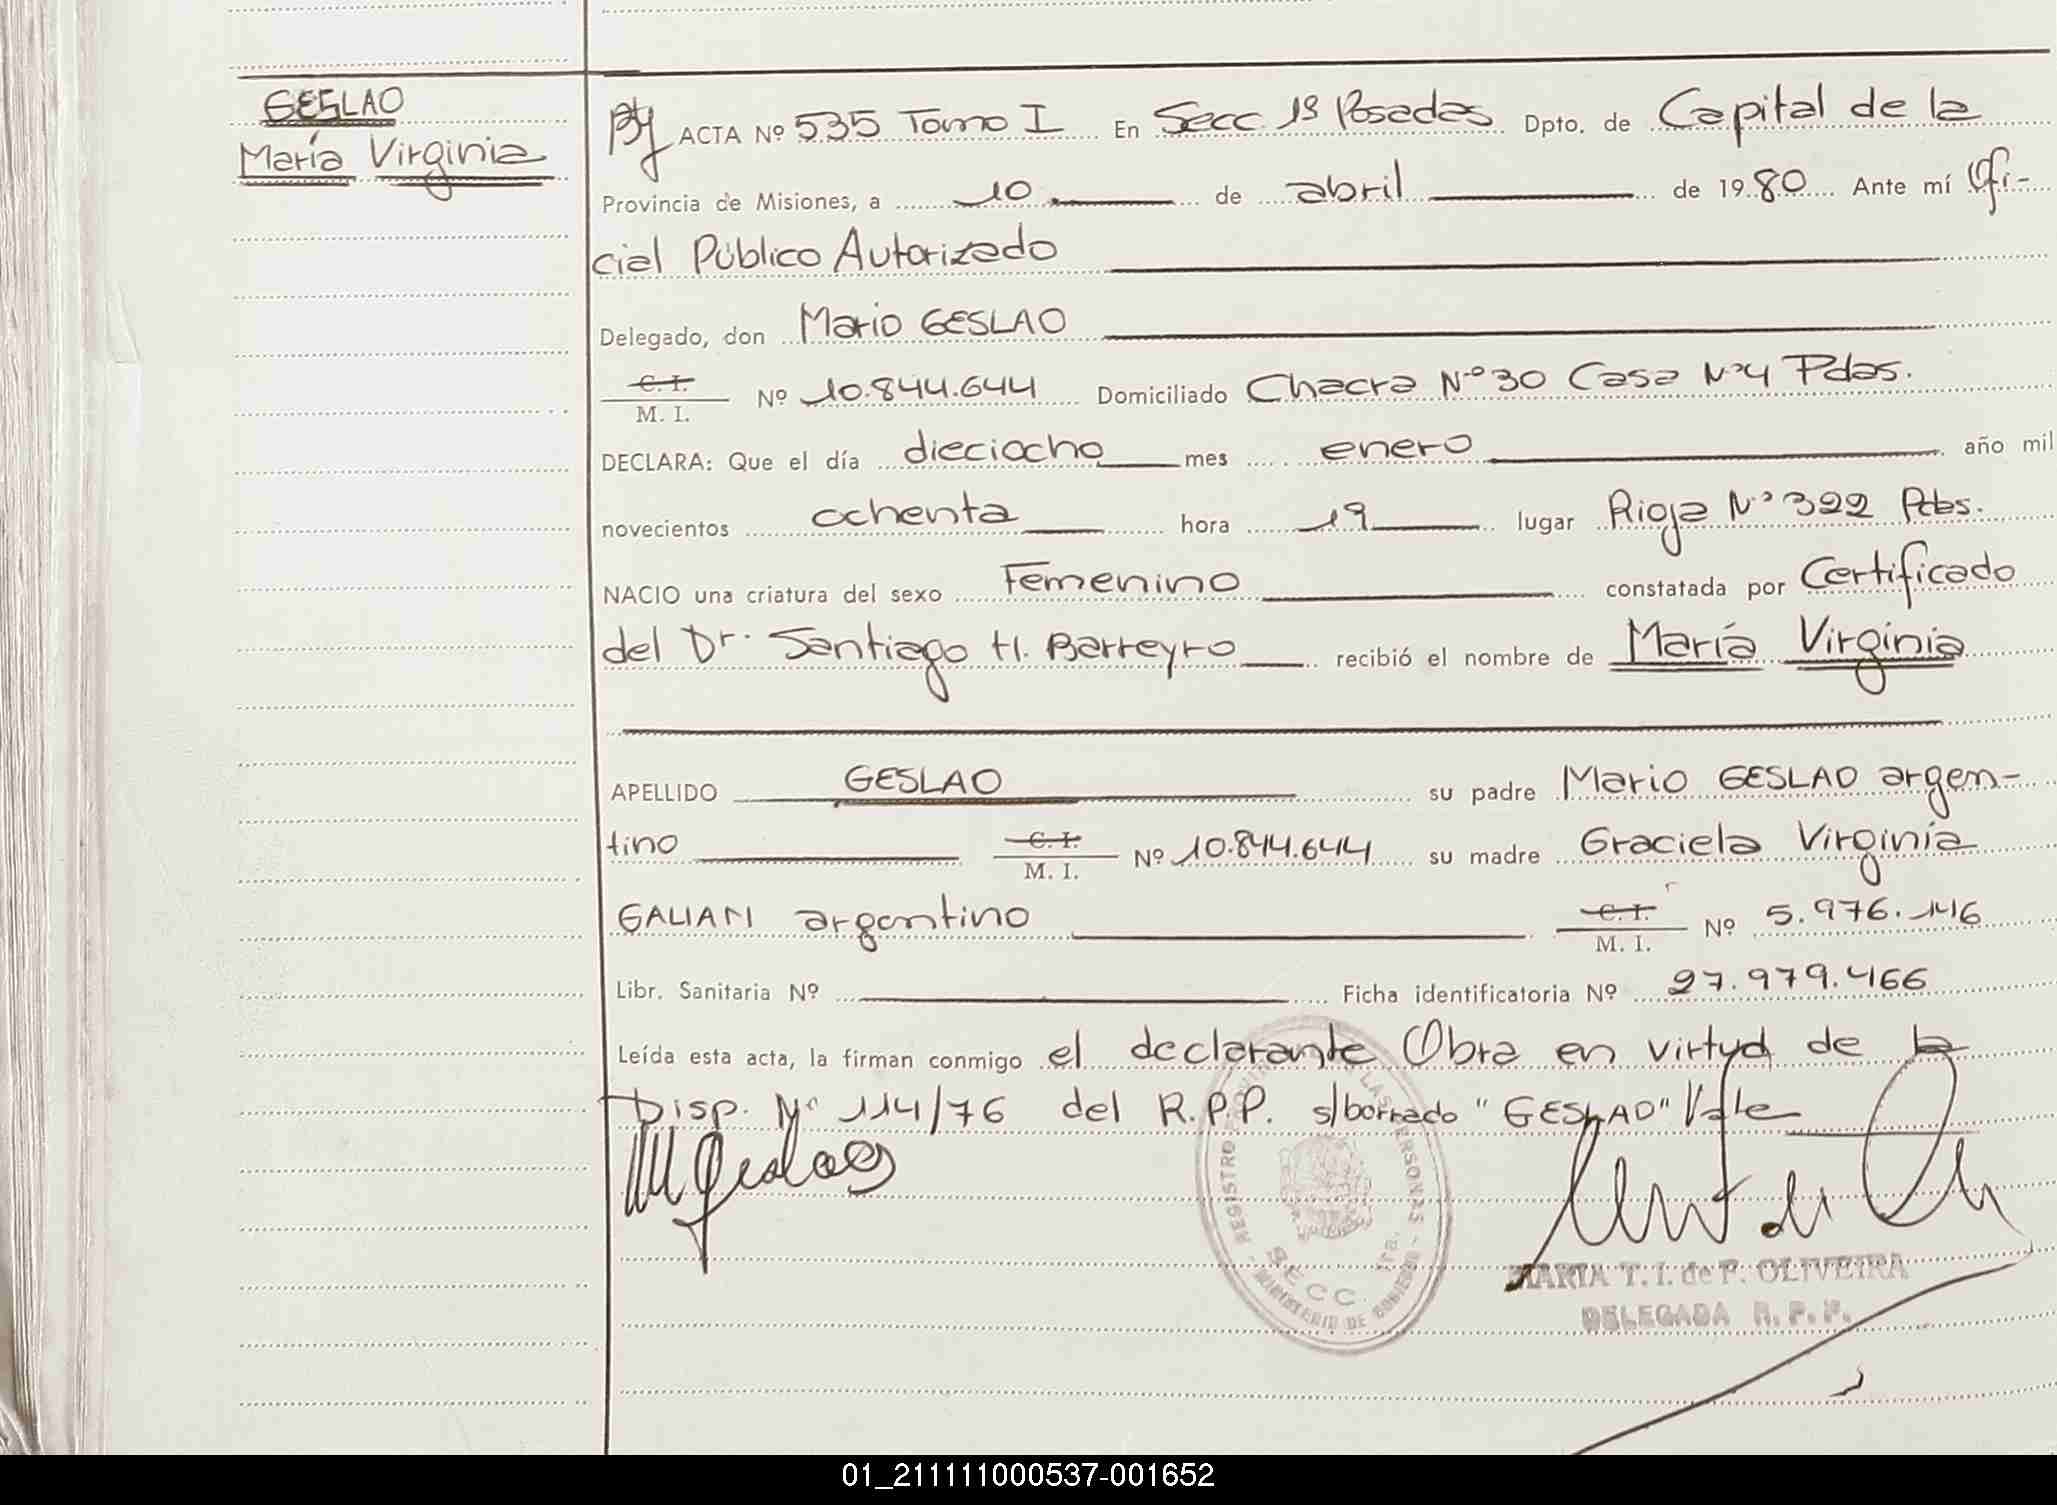 GESLAO
María Virginia
ACTA Nº 535 Tomo I En Secc 1ª Posadas Dpto. de Capital de la
Provincia de Misiones, a 10 de abril de 1980 Ante mí Ofi-
cial Público Autorizado
Delegado, don Mario GESLAO
C. I.
M. I. Nº 10.844.644 Domiciliado Chacra Nº 30 Casa Nº 4 Pdas.
DECLARA: Que el día dieciocho mes enero año mil
novecientos ochenta hora 19 lugar Rioja Nº 322 Pdas.
NACIO una criatura del sexo Femenino constatada por Certificado
del Dr. Santiago H. Barreyro recibió el nombre de María Virginia
APELLIDO GESLAO su padre Mario GESLAO argen-
tino C. I. M. I. Nº 10.844.644 su madre Graciela Virginia
GALIANI argentino C. I. M. I. Nº 5.976.146
Libr. Sanitaria Nº Ficha identificatoria Nº 27.979.466
Leída esta acta, la firman conmigo el declarante Obra en virtud de la
Disp. Nº 114/76 del R.P.P. s/borrado "GESLAO" Vale
REGISTRO PROVINCIAL DE LAS PERSONAS
SECC. 1ra.
MINISTERIO DE GOBIERNO
MARTA T. I. de F. OLIVEIRA
DELEGADA R. P. P.
01_211111000537-001652